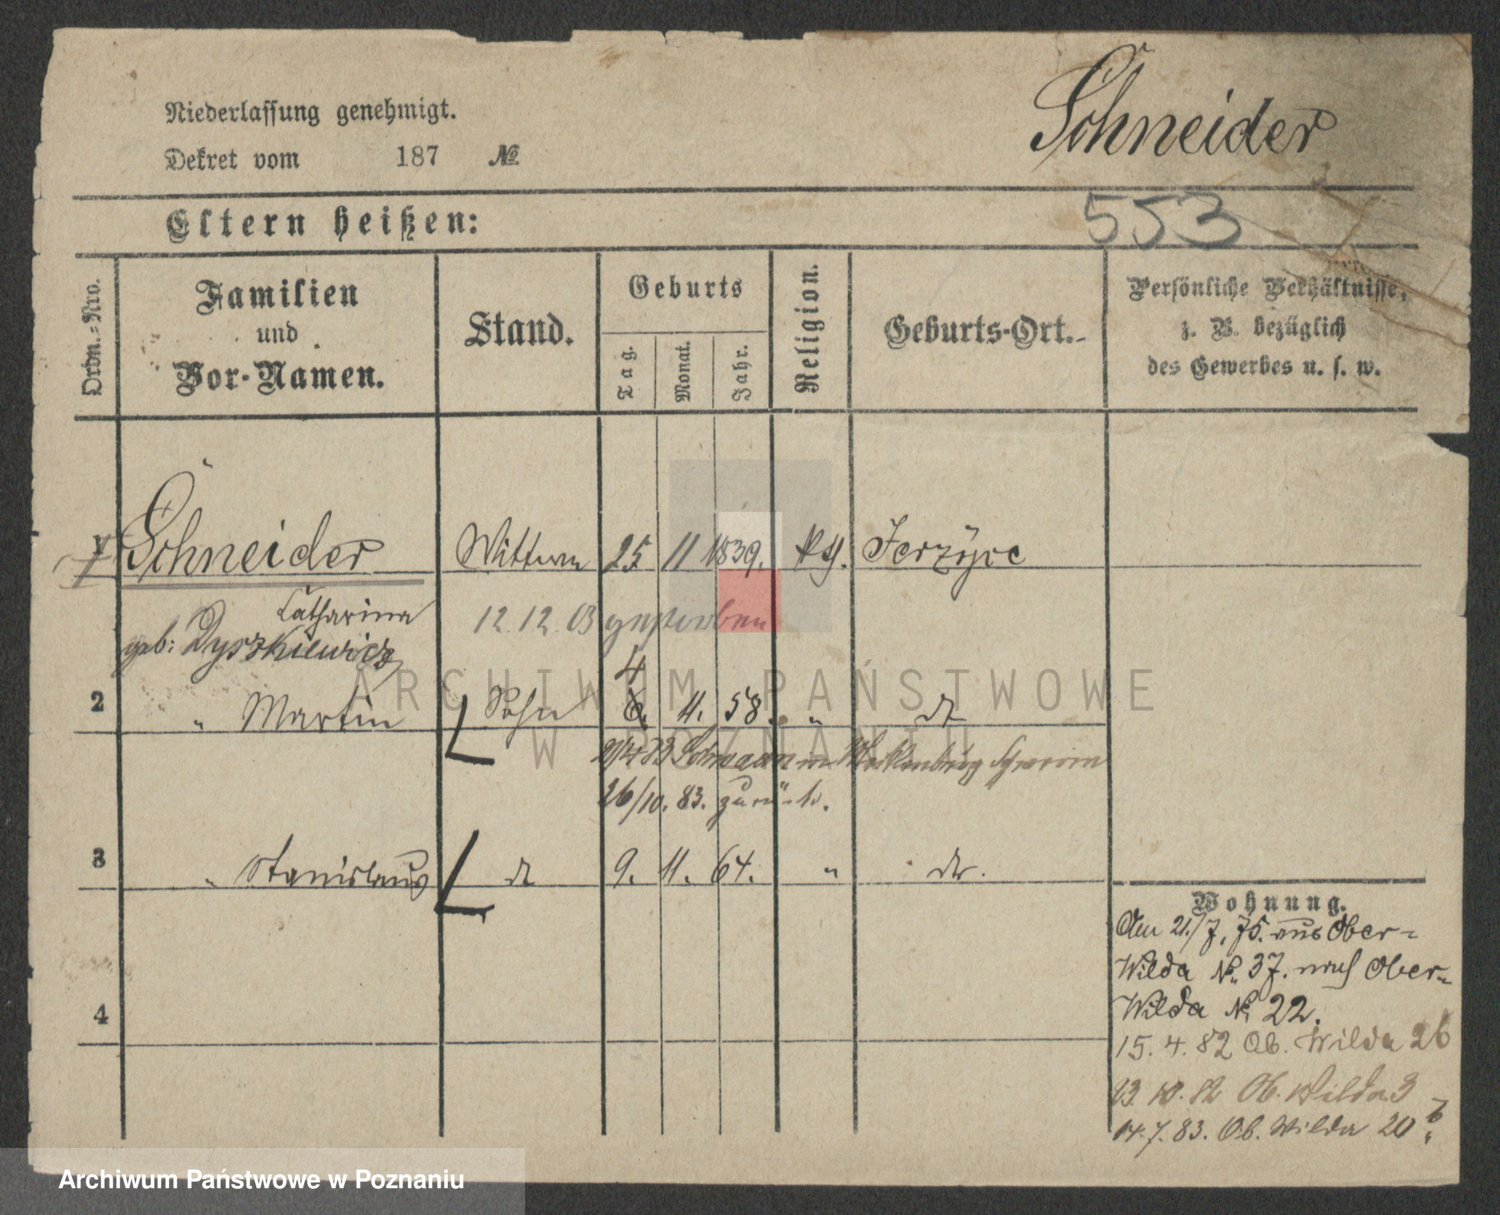 Niederlassung genehmigt.
Dekret vom 187 №
Schneider
Eltern heißen:
553
Ordn.-Nro.
Familien
und
Vor-Namen.
Stand.
Geburts
Tag.
Monat.
Jahr.
Religion.
Geburts-Ort.
Persönliche Verhältnisse,
z. B. bezüglich
des Gewerbes u. s. w.
1 Schneider Wittwe 25 11 1839. Jerzyce
Catharina
12.12.03 gestorben
geb: Dyszkiewicz
4
2 " Martin Sohn 6. 11. 58. " do
83 in Mecklenburg Schwerin
26/10. 83. zurück.
3 " Stanislaus do 9. 11. 64. " do.
4
Wohnung.
Den 21./7. 75. aus Ober-
Wilda №. 37. nach Ober-
Wilda № 22.
15. 4. 82 Ob. Wilda 26
23. 10. 82 Ob. Wilda 3
14. 7. 83. Ob. Wilda 20 b.
ARCHIWUM PAŃSTWOWE
W POZNANIU
Archiwum Państwowe w Poznaniu